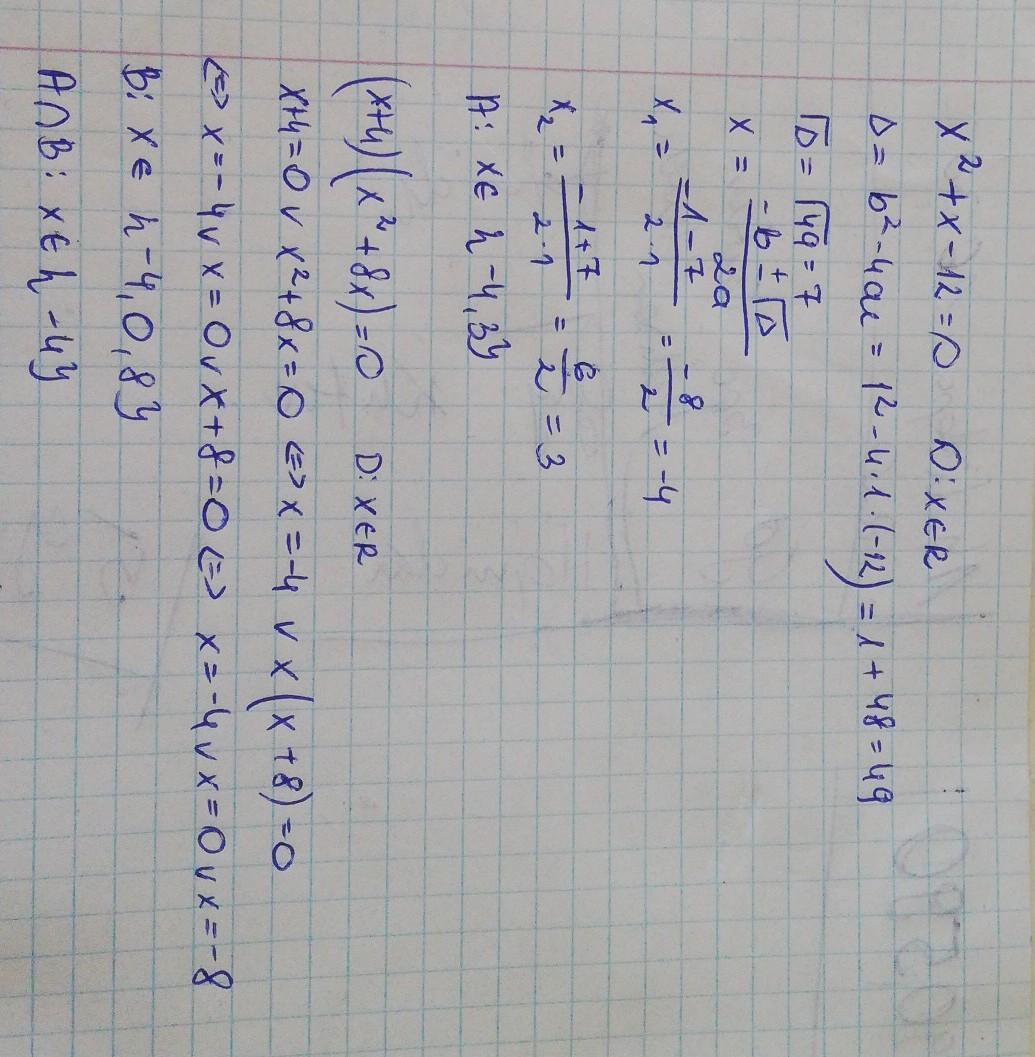 x² + x - 12 = 0 D: x ∈ R
Δ = b² - 4ac = 1² - 4·1·(-12) = 1 + 48 = 49
√Δ = √49 = 7
x = (-b ± √Δ) / 2a
x₁ = (-1 - 7) / (2·1) = -8/2 = -4
x₂ = (-1 + 7) / (2·1) = 6/2 = 3
A: x ∈ {-4, 3}
(x+4)(x² + 8x) = 0 D: x ∈ R
x+4 = 0 ∨ x² + 8x = 0 ⇔ x = -4 ∨ x(x + 8) = 0
⇔ x = -4 ∨ x = 0 ∨ x + 8 = 0 ⇔ x = -4 ∨ x = 0 ∨ x = -8
B: x ∈ {-4, 0, 8}
A ∩ B: x ∈ {-4}